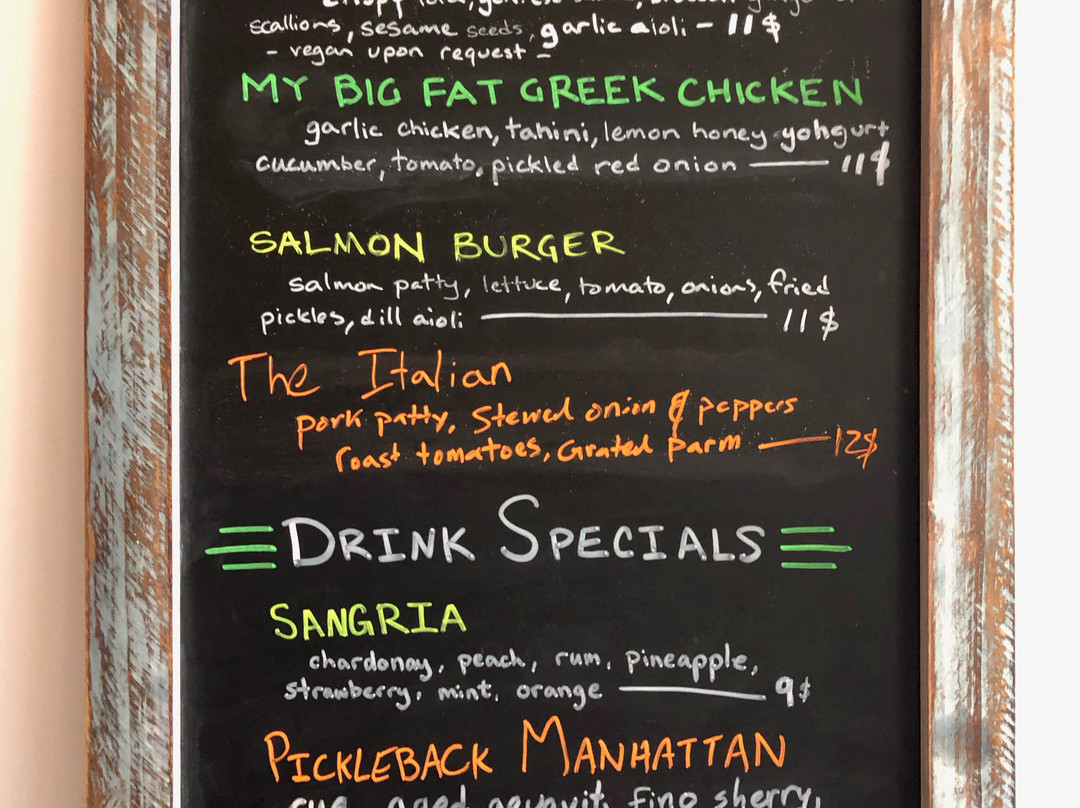 scallions, sesame seeds, garlic aioli - 11$
- vegan upon request -
MY BIG FAT GREEK CHICKEN
garlic chicken, tahini, lemon honey yohgurt
cucumber, tomato, pickled red onion — 11$
SALMON BURGER
salmon patty, lettuce, tomato, onions, fried
pickles, dill aioli — 11$
The Italian
pork patty, Stewed onion & peppers
roast tomatoes, Grated parm — 12$
DRINK SPECIALS
SANGRIA
chardonay, peach, rum, pineapple,
strawberry, mint, orange — 9$
PICKLEBACK MANHATTAN
rye, aged aquavit, fino sherry,